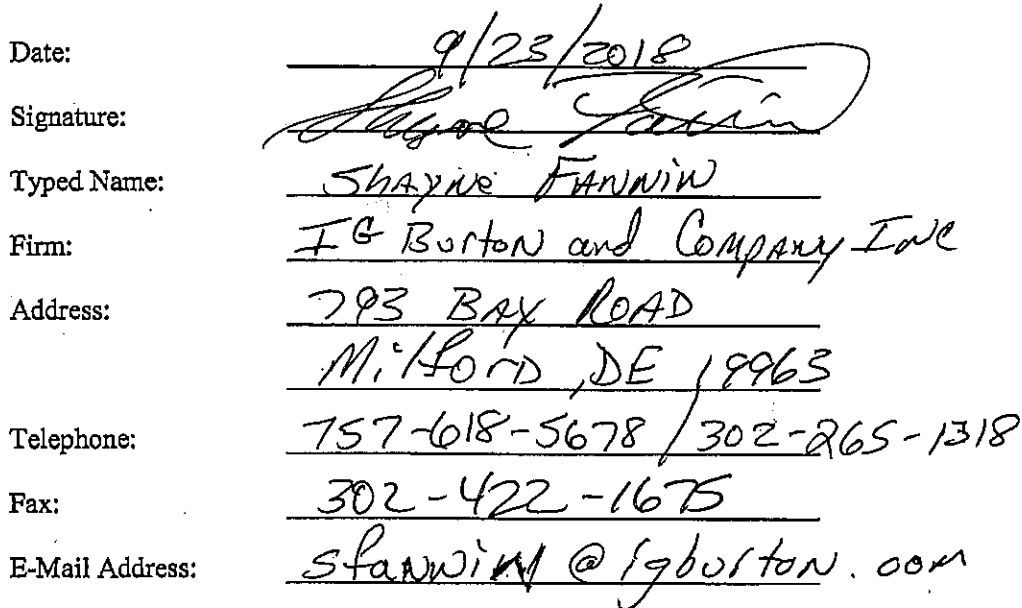 Date: 9/23/2018
Signature: Shayne Fannin
Typed Name: Shayne Fannin
Firm: IG Burton and Company Inc
Address: 793 Bay Road
Milford, DE 19963
Telephone: 757-618-5678 / 302-265-1318
Fax: 302-422-1675
E-Mail Address: sfannin@igburton.com